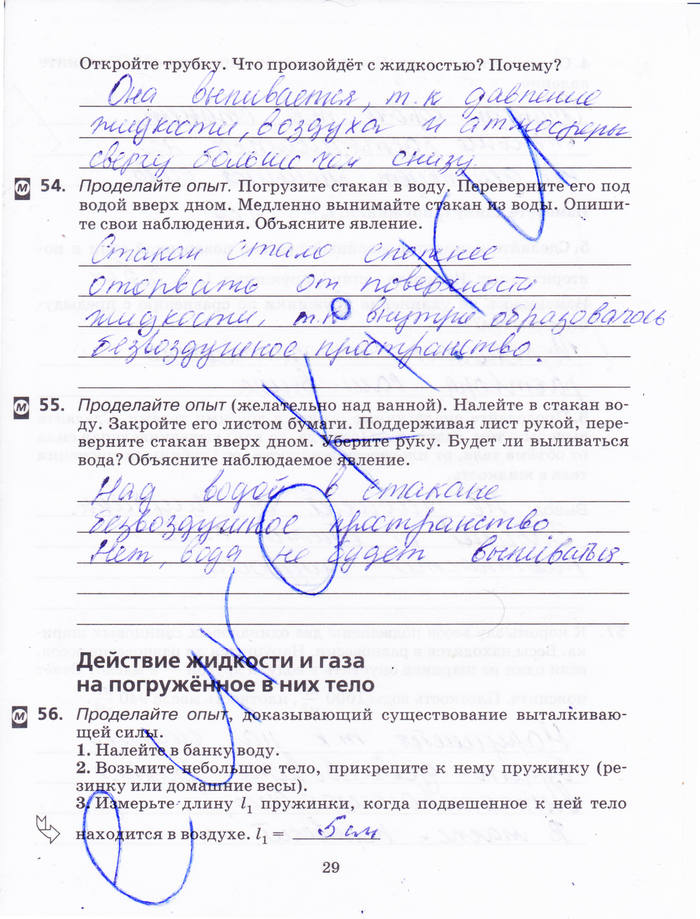 Откройте трубку. Что произойдёт с жидкостью? Почему?
Она выливается, т.к давление
жидкости, воздуха и атмосферы
сверху больше чем снизу
м 54. Проделайте опыт. Погрузите стакан в воду. Переверните его под
водой вверх дном. Медленно вынимайте стакан из воды. Опиши-
те свои наблюдения. Объясните явление.
Стакан стало сложнее
оторвать от поверхности
жидкости, т.к внутри образовалось
безвоздушное пространство.
м 55. Проделайте опыт (желательно над ванной). Налейте в стакан во-
ду. Закройте его листом бумаги. Поддерживая лист рукой, пере-
верните стакан вверх дном. Уберите руку. Будет ли выливаться
вода? Объясните наблюдаемое явление.
Над водой в стакане
безвоздушное пространство
Нет, вода не будет выливаться.
Действие жидкости и газа
на погружённое в них тело
м 56. Проделайте опыт, доказывающий существование выталкиваю-
щей силы.
1. Налейте в банку воду.
2. Возьмите небольшое тело, прикрепите к нему пружинку (ре-
зинку или домашние весы).
3. Измерьте длину l₁ пружинки, когда подвешенное к ней тело
находится в воздухе. l₁ = 5 см
29